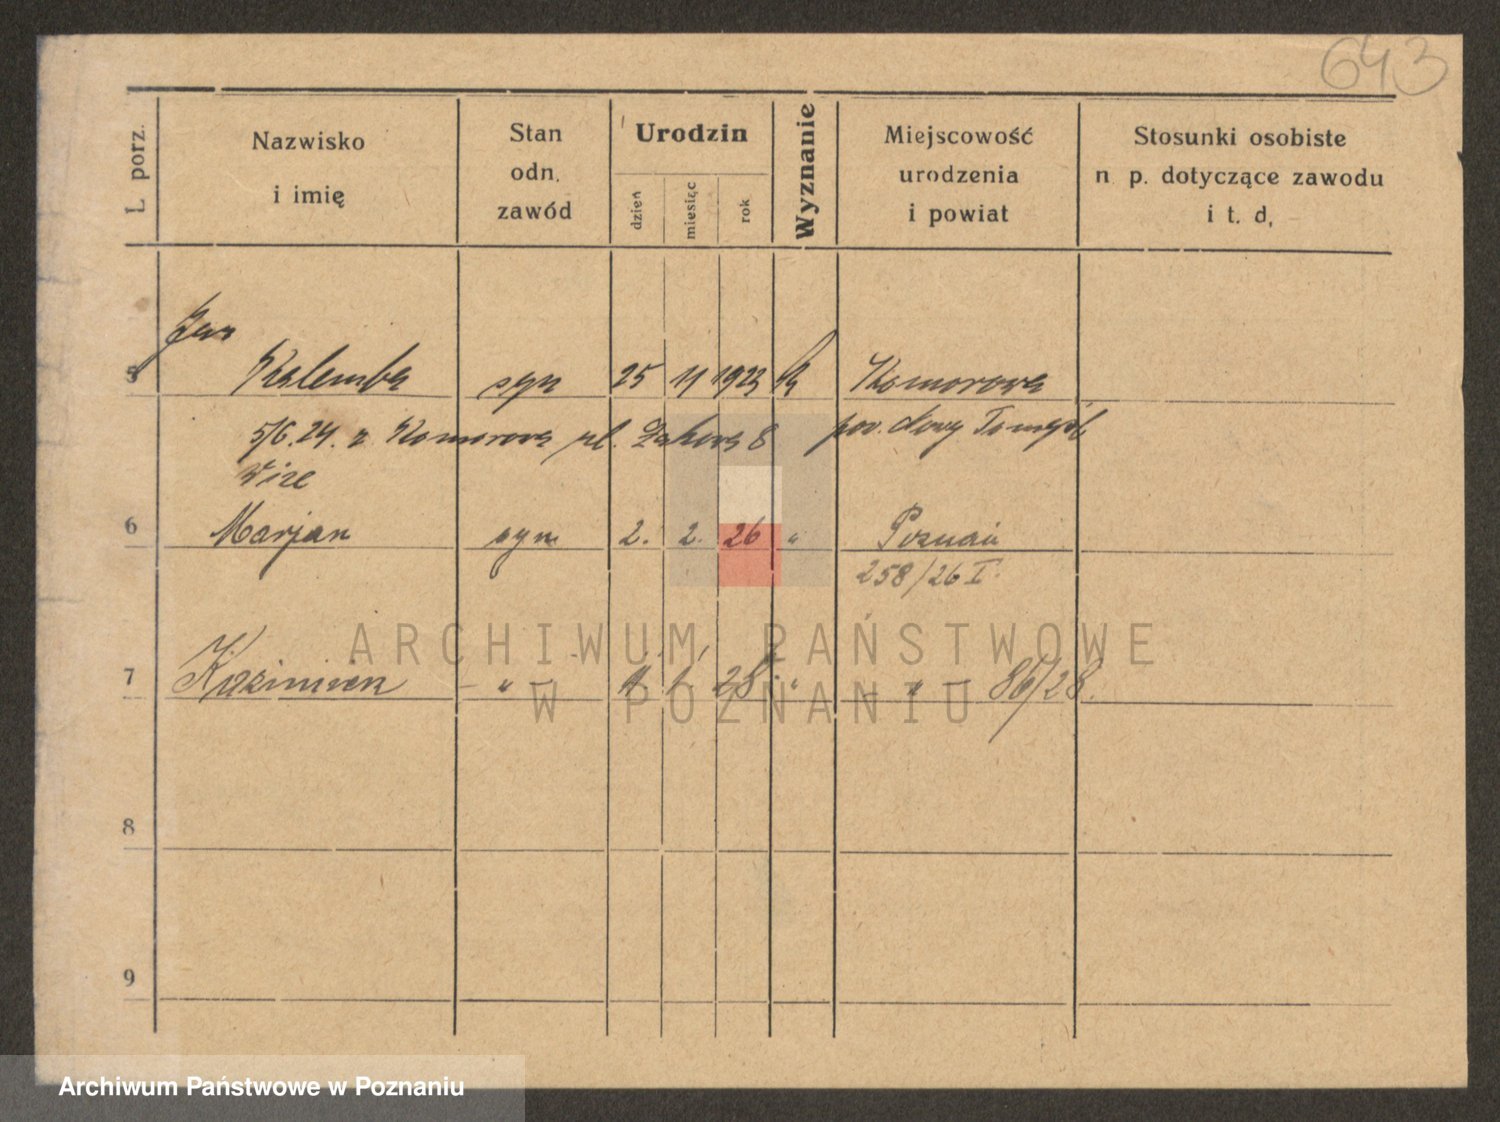 643
L porz.
Nazwisko
i imię
Stan
odn.
zawód
Urodzin
dzień
miesiąc
rok
Wyznanie
Miejscowość
urodzenia
i powiat
Stosunki osobiste
n p. dotyczące zawodu
i t. d,
Jan
5 Kalemba syn 25 11 1923 Komorowa
5/6.24. z Komorowa ul. 8 pow. Nowy Tomyśl
6 Marjan syn 2. 2. 26 " Poznań
258/26 I.
7 Kazimierz – " – 1 28 " – " – 86/28.
8
9
ARCHIWUM PAŃSTWOWE
W POZNANIU
Archiwum Państwowe w Poznaniu